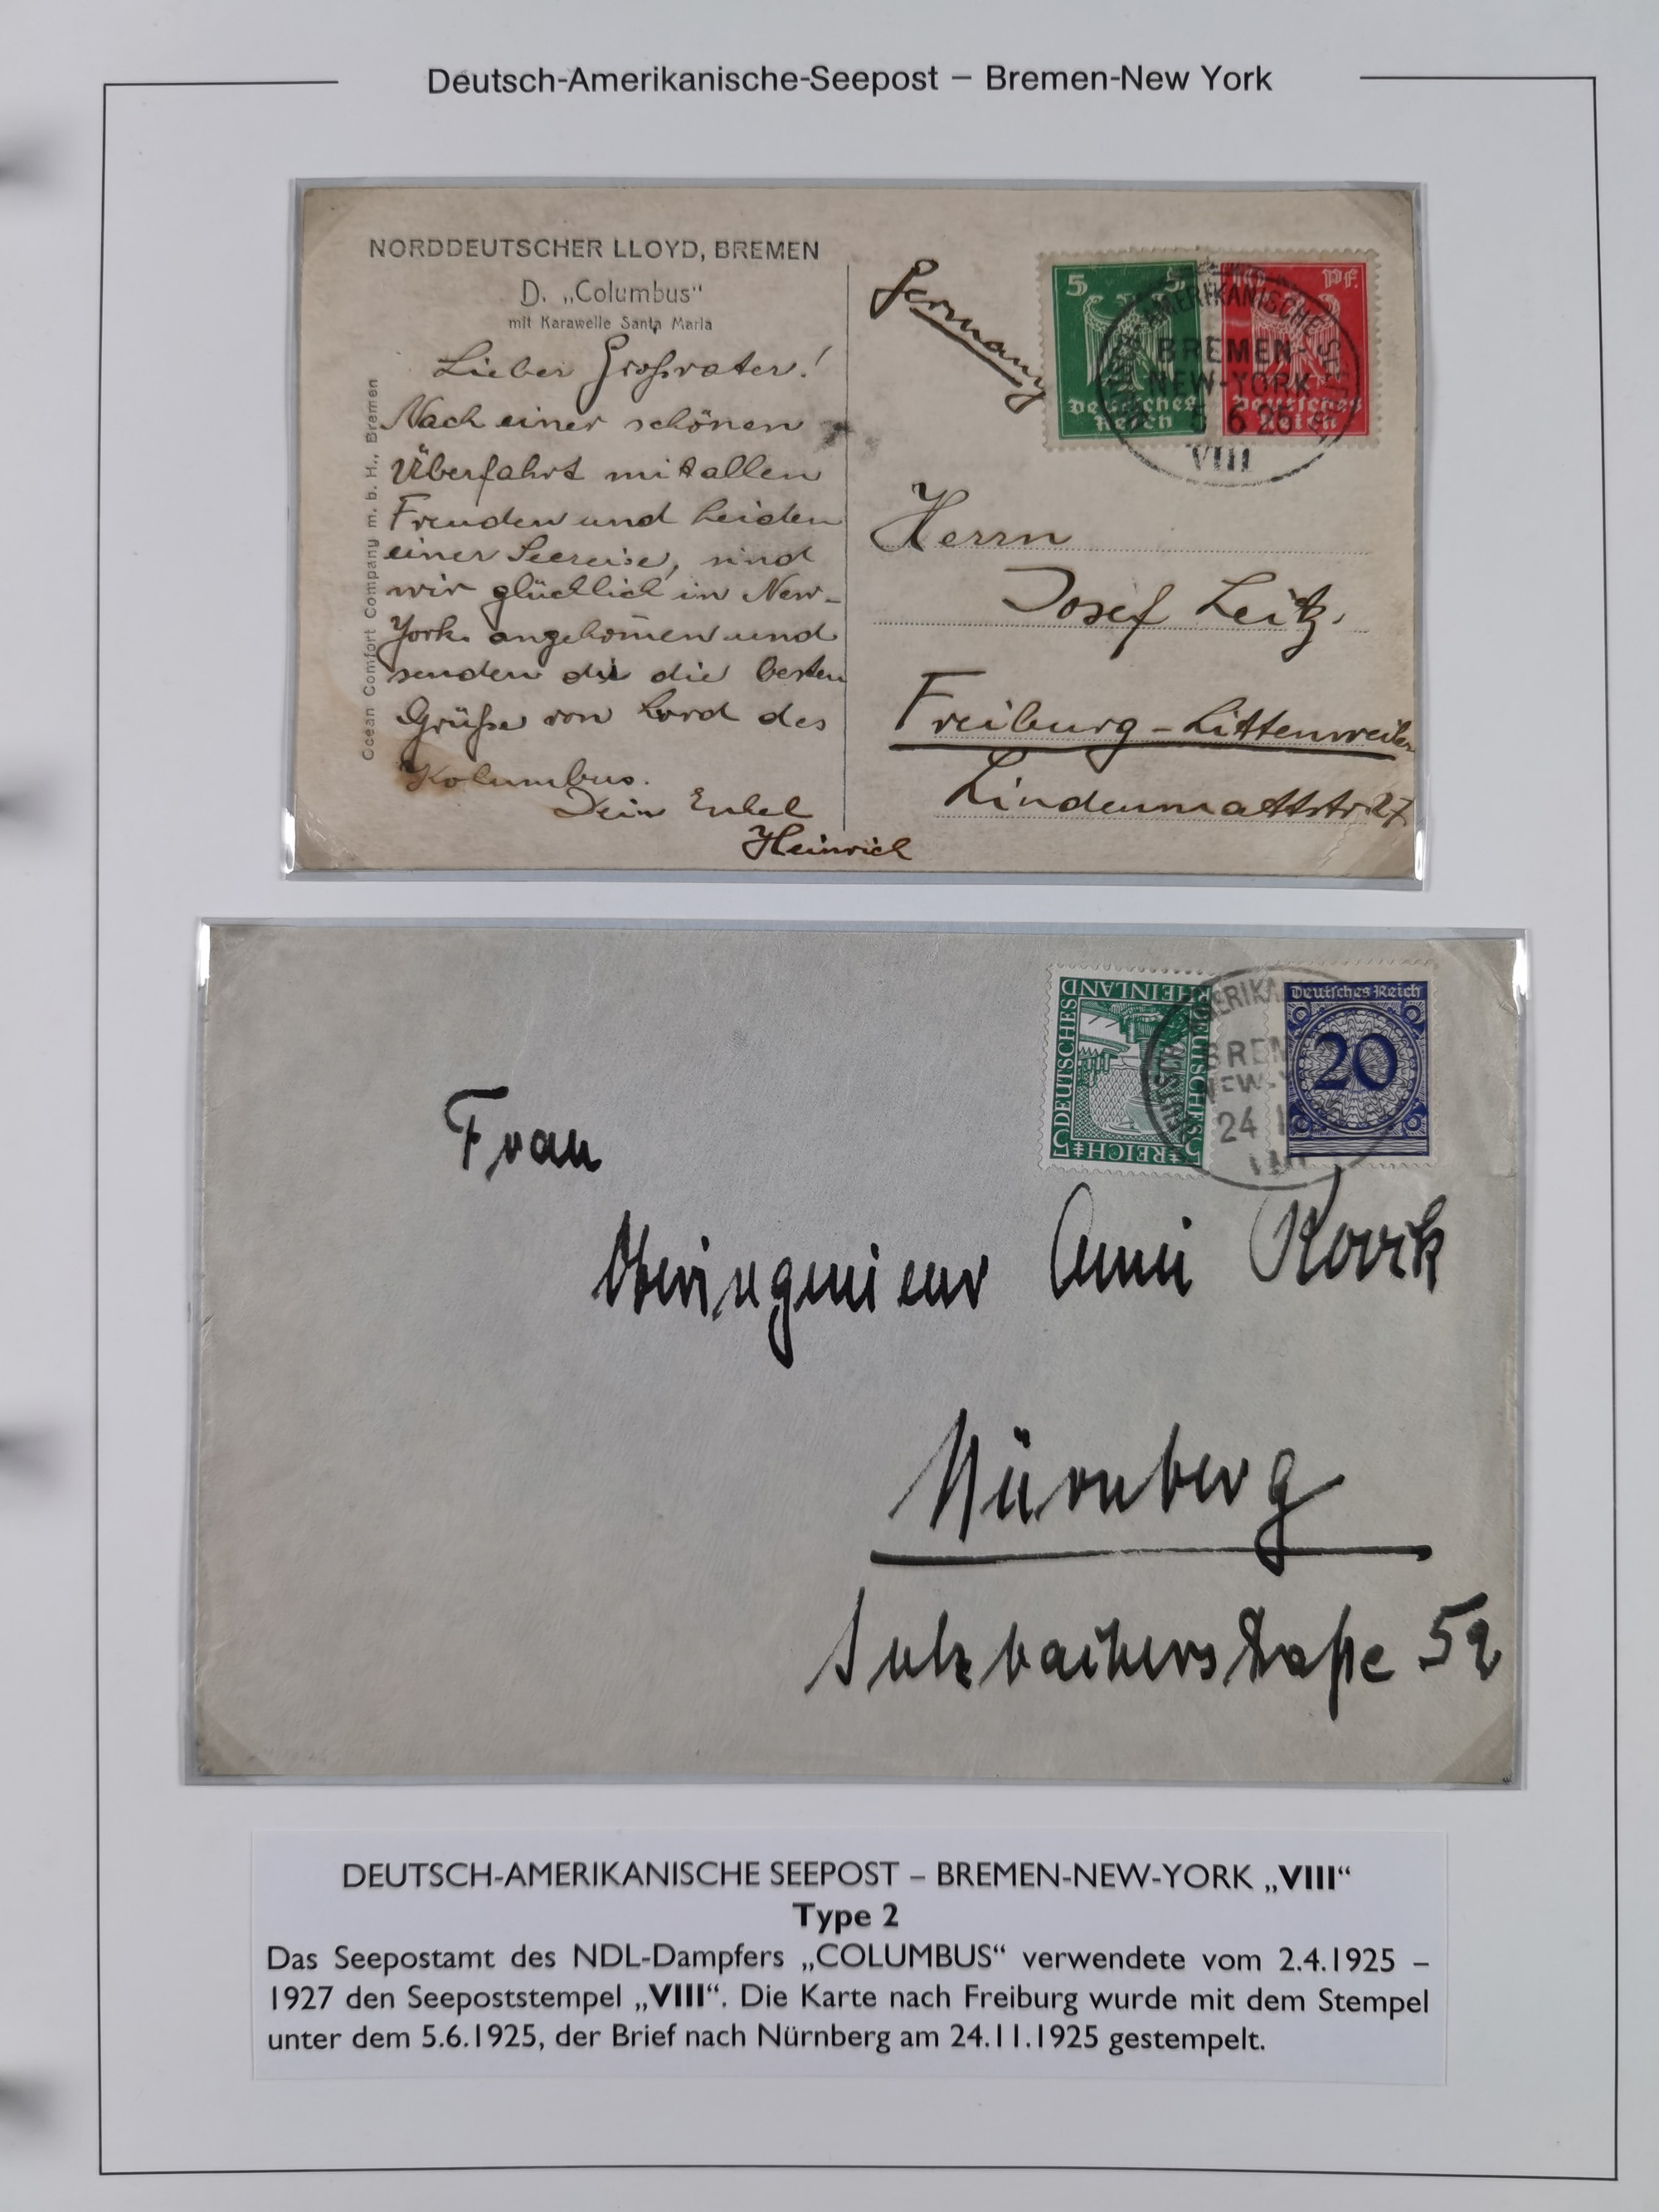 Deutsch-Amerikanische-Seepost – Bremen-New York
NORDDEUTSCHER LLOYD, BREMEN
D. „Columbus“
mit Karawelle Santa Maria
Ocean Comfort Company m. b. H., Bremen
Lieber Großvater!
Nach einer schönen
Überfahrt mit allen
Freuden und Leiden
einer Seereise, sind
wir glücklich in New-
York angekommen und
senden dir die besten
Grüße von Bord des
Kolumbus.
Dein Enkel
Heinrich
Germany
5 5
Deutsches
Reich
10 Pf.
Deutsches
Reich
AMERIKANISCHE
BREMEN-
NEW-YORK
5 6 25
VIII
Herrn
Josef Leitz,
Freiburg-Littenweiler
Lindenmattstr. 27
DEUTSCHES
RHEINLAND
DEUTSCHES
5 REICH 5
Deutsches Reich
20
BREM
NEW-Y
24
Frau
Oberingenieur Anni
Nürnberg
Sulzbacherstraße 52
DEUTSCH-AMERIKANISCHE SEEPOST – BREMEN-NEW-YORK „VIII“
Type 2
Das Seepostamt des NDL-Dampfers „COLUMBUS“ verwendete vom 2.4.1925 –
1927 den Seepoststempel „VIII“. Die Karte nach Freiburg wurde mit dem Stempel
unter dem 5.6.1925, der Brief nach Nürnberg am 24.11.1925 gestempelt.